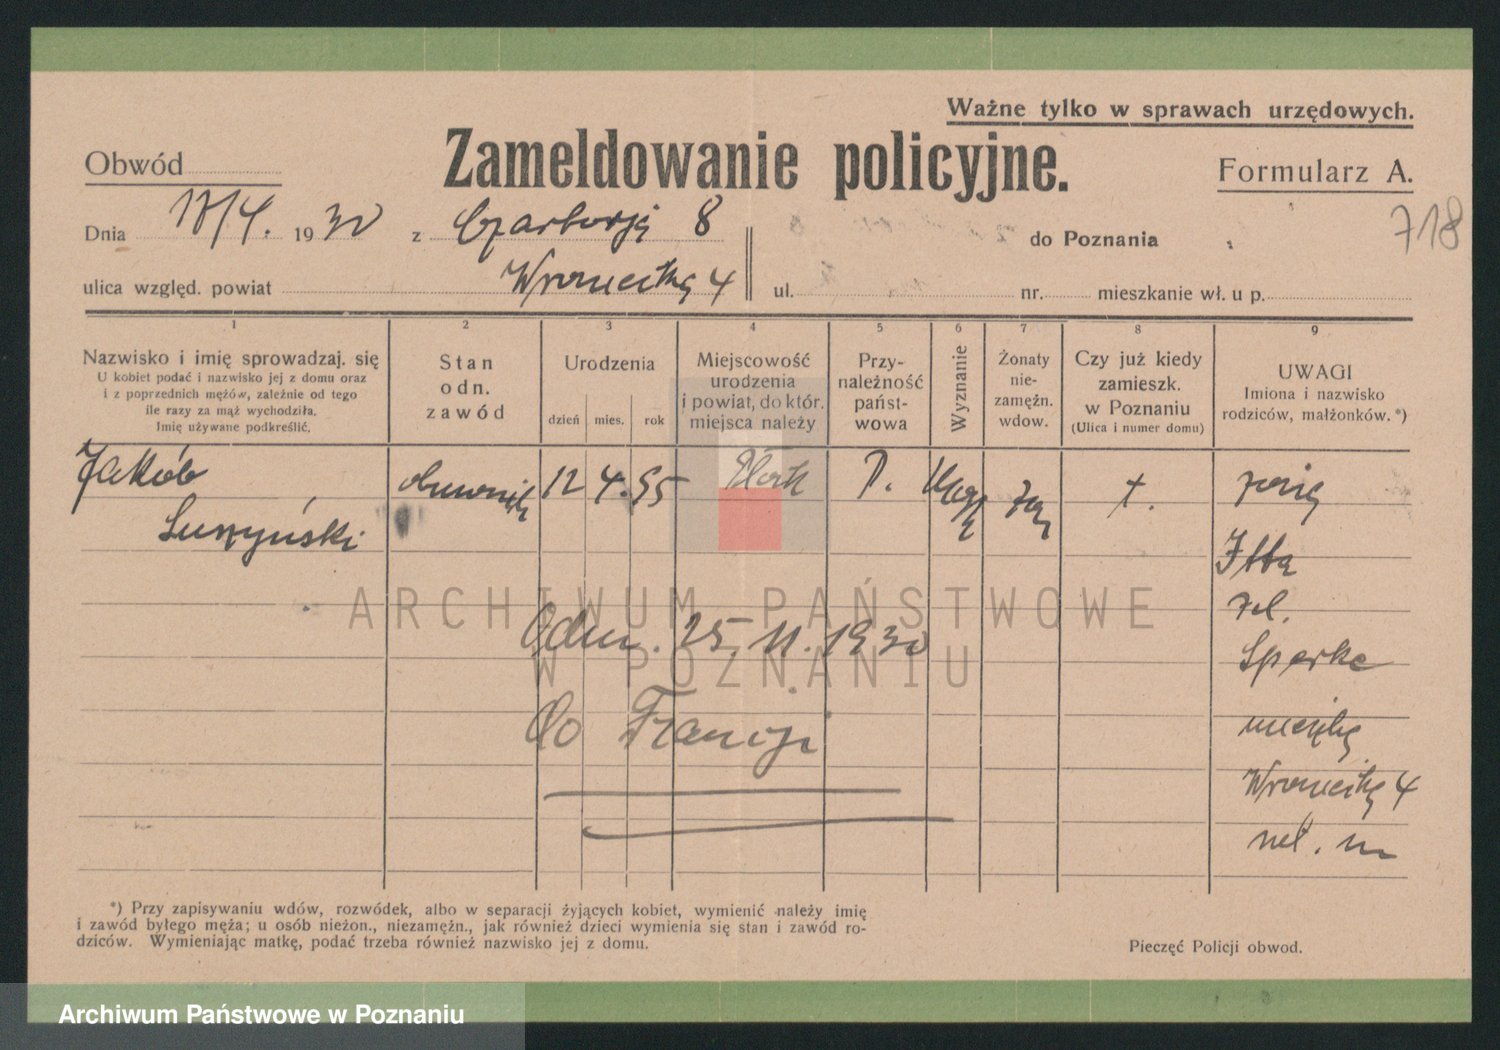 Ważne tylko w sprawach urzędowych.
Zameldowanie policyjne.
Obwód
Formularz A.
718
Dnia 18/4. 1930 z 8 do Poznania
ulica względ. powiat 4 ul. nr. mieszkanie wł. u p.
1 2 3 4 5 6 7 8 9
Nazwisko i imię sprowadzaj. się
U kobiet podać i nazwisko jej z domu oraz
i z poprzednich mężów, zależnie od tego
ile razy za mąż wychodziła.
Imię używane podkreślić.
Stan
odn.
zawód
Urodzenia
dzień mies. rok
Miejscowość
urodzenia
i powiat, do któr.
miejsca należy
Przy-
należność
państ-
wowa
Wyznanie
Żonaty
nie-
zamężn.
wdow.
Czy już kiedy
zamieszk.
w Poznaniu
(Ulica i numer domu)
UWAGI
Imiona i nazwisko
rodziców, małżonków. *)
Jakób 12 4. 95 P. †.
Itta
Odm. 25. 11. 1930
do Francji
4
ARCHIWUM PAŃSTWOWE
W POZNANIU
*) Przy zapisywaniu wdów, rozwódek, albo w separacji żyjących kobiet, wymienić należy imię
i zawód byłego męża; u osób nieżon., niezamężn., jak również dzieci wymienia się stan i zawód ro-
dziców. Wymieniając matkę, podać trzeba również nazwisko jej z domu.
Pieczęć Policji obwod.
Archiwum Państwowe w Poznaniu